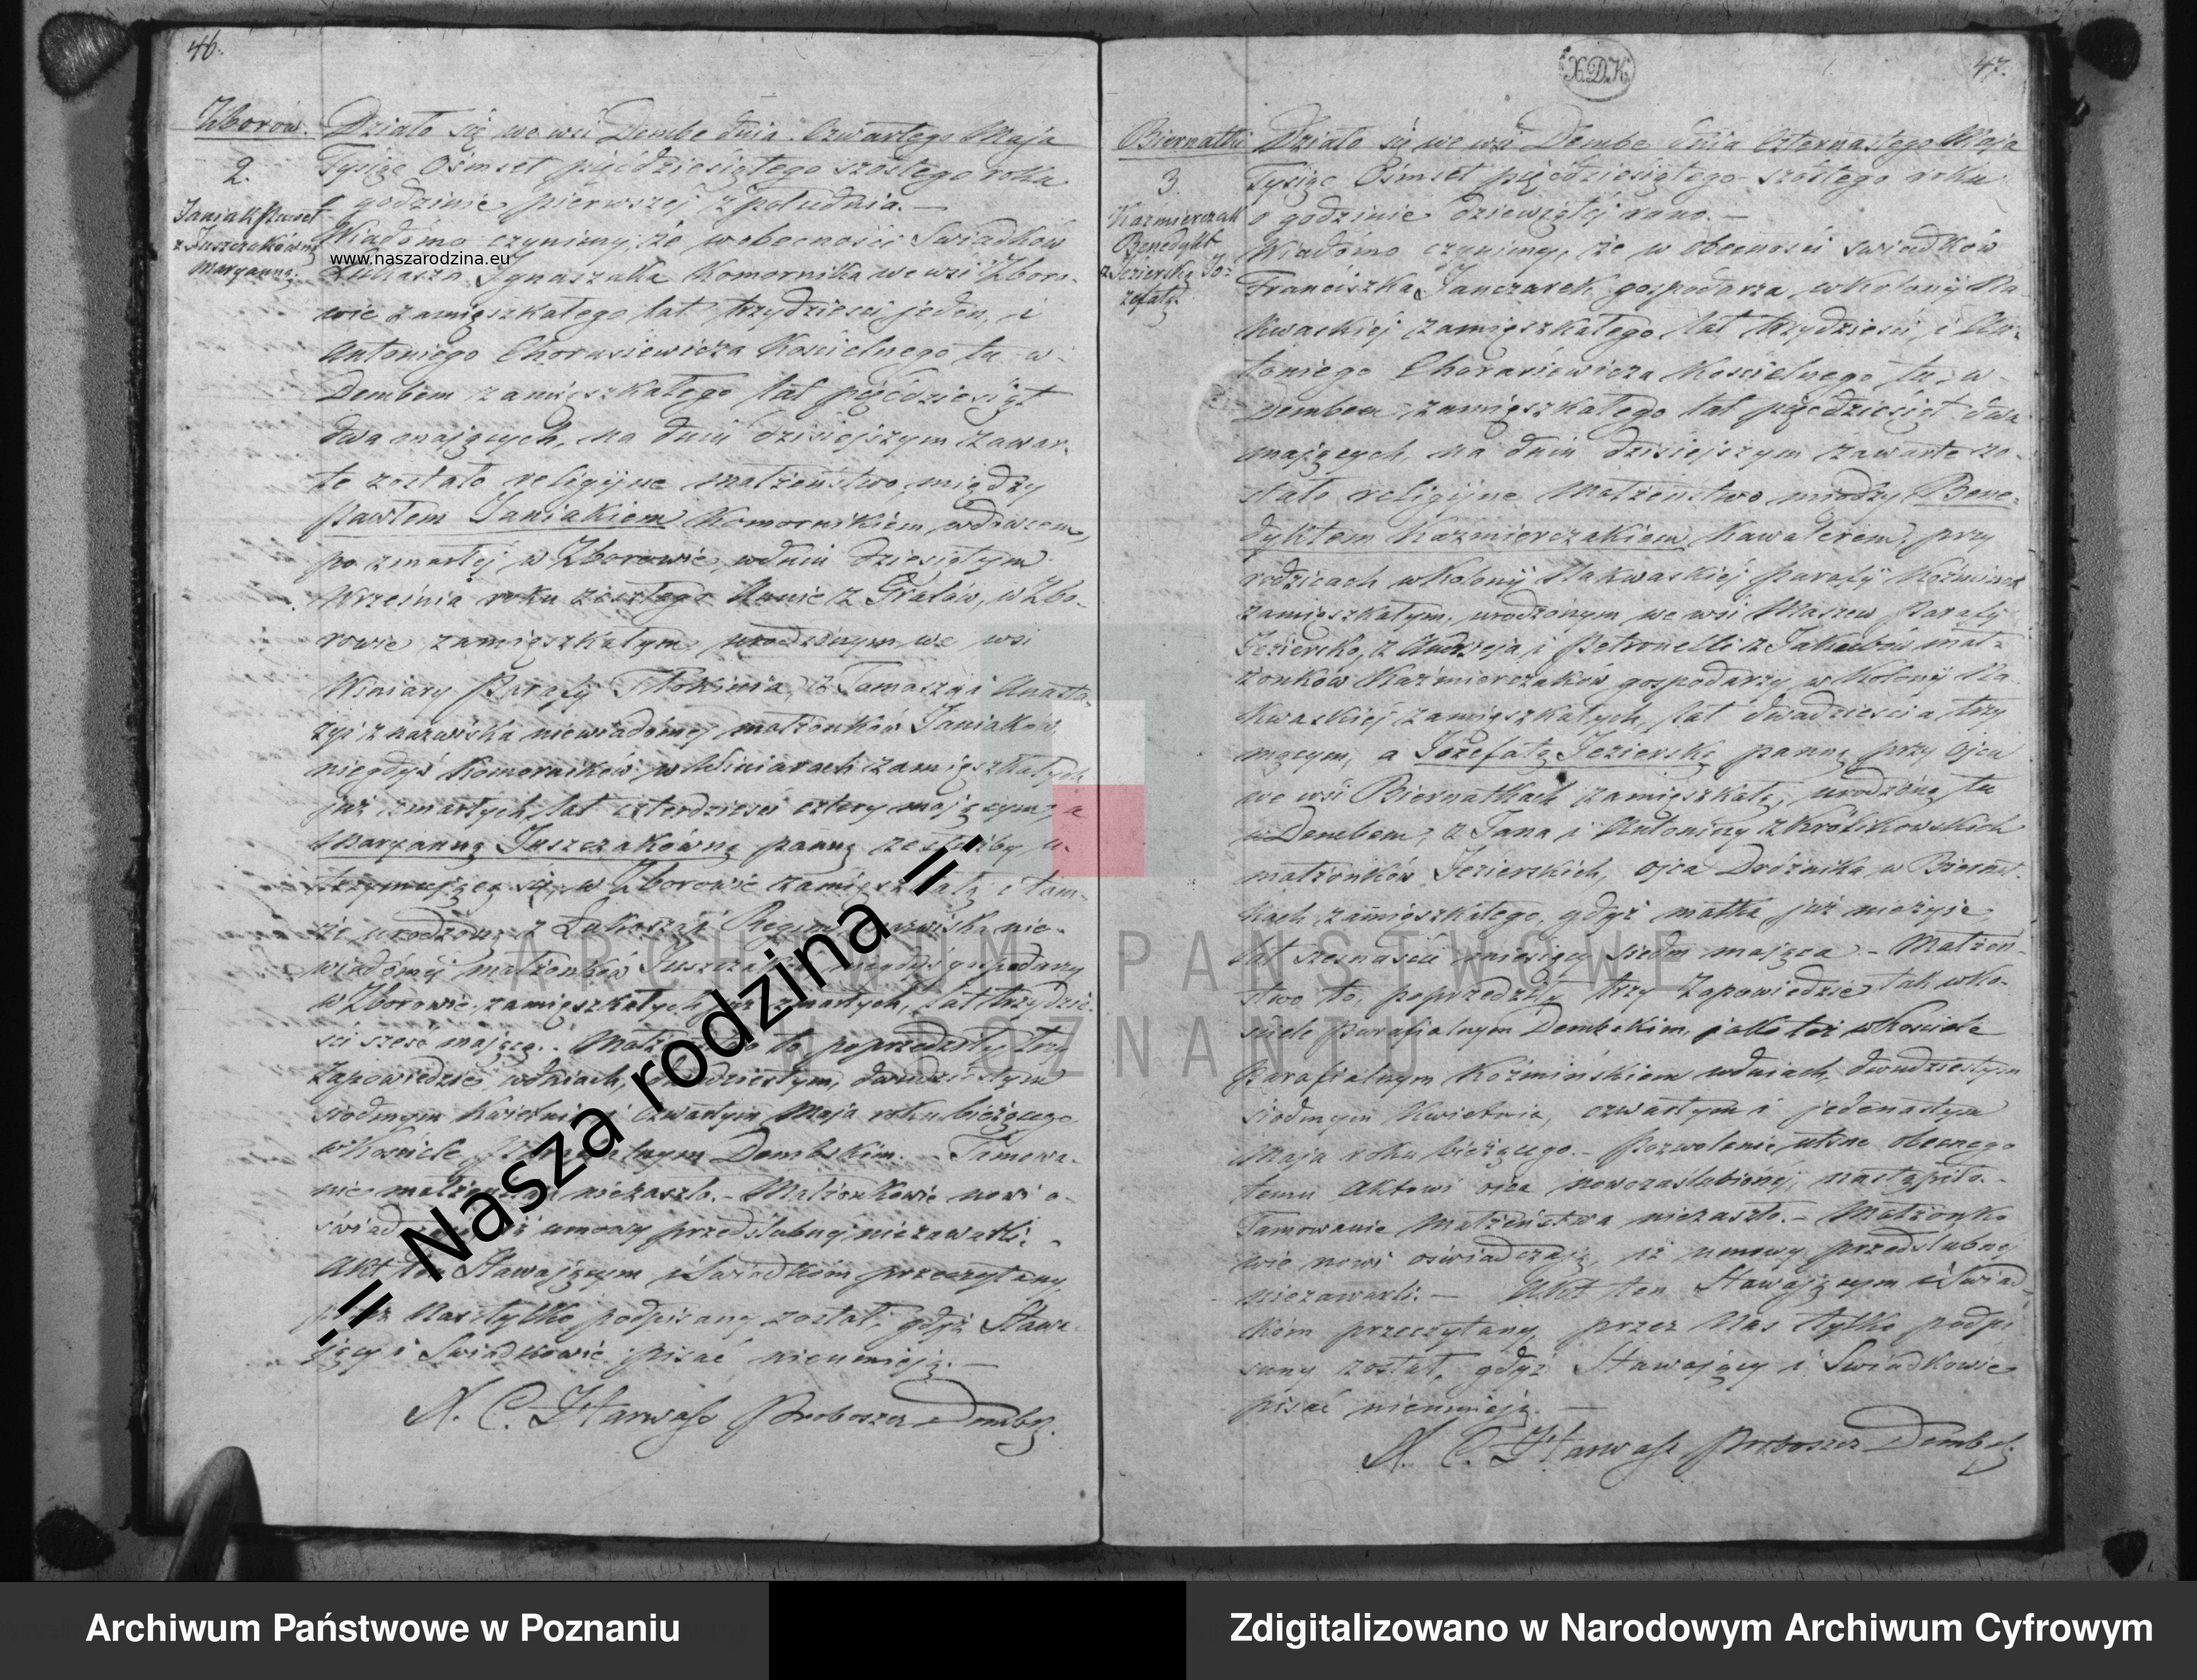 46.
Zborów.
2.
Janiak Paweł
z Juszczakówną
Maryanną.
Działo się we wsi Dembe dnia Czwartego Maja
Tysiąc Ośmset pięćdziesiątego szóstego roku
o godzinie pierwszej z południa. —
Wiadomo czynimy, że w obecności Swiadków
www.naszarodzina.eu
Łukasza Ignaszaka Komornika we wsi Zboro-
wie zamięszkałego lat trzydzieści jeden, i
Antoniego Chorasiewicza Kościelnego tu w
Dembem zamięszkałego lat pięćdziesiąt
dwa mających, na dniu dzisiejszym zawar-
te zostało religijne małżeństwo między
Pawłem Janiakiem Komornikiem wdowcem,
po zmarłej w Zborowie, w dniu dziesiątym
Września roku zeszłego Annie z Grałów, w Zbo-
rowie zamięszkałym, urodzonym we wsi
Winiary Parafy Tłokinia, z Tomasza i Anasta-
zyi z nazwiska niewiadomej małżonków Janiaków
niegdyś Komorników w Winiarach zamięszkałych
już zmarłych, lat czterdzieści cztery mającym, a
Maryanną Juszczakówną panną ze służby u-
trzymującą się, w Zborowie zamięszkałą i tam-
że urodzoną z Łukasza i Reginy nazwiska nie-
wiadomej małżonków Juszczaków niegdyś gospodarzy
w Zborowie zamięszkałych już zmarłych, lat trzydzie-
ści sześć mającą. Małżeństwo to poprzedziły trzy
Zapowiedzie w dniach, dwudziestym, dwudziestym
siodmym Kwietnia i Czwartym Maja roku bieżącego
w Kosciele Parafialnym Dembskim. - Tamowa-
nie małżeństwa niezaszło. - Małżonkowie nowi o-
świadczają iż umowy przedślubnej niezawarli. -
Akt ten Stawającym i Swiadkom przeczytany,
przez Nas tylko podpisany został, gdyż Stawa-
jący i Swiadkowie pisać nieumieją. —
X. C. Harwass Proboszcz Dembs.
X.D.K.
47.
Biernatki
3.
Kaźmierczak
Benedykt
z Jezierską Jo-
zefatą.
Działo się we wsi Dembe dnia Czternastego Maja
Tysiąc Ośmset pięćdziesiątego szóstego roku
o godzinie dziewiątej rano. —
Wiadomo czynimy, że w obecności swiadków
Franciszka Janczarek gospodarza w Kolonij Na-
kwaskiej zamięszkałego lat trzydzieści, i An-
toniego Chorasiewicza Kościelnego tu, w
Dembem zamięszkałego lat pięćdziesiąt dwa
mających, na dniu dzisiejszym zawarte zo-
stało religijne Małżeństwo między Bene-
dyktem Kaźmierczakiem Kawalerem, przy
rodzicach w Kolonij Nakwaskiej Parafij Koźminek
zamięszkałym, urodzonym we wsi Maszew Parafij
Jeziersko, z Andrzeja i Petronelli z Jakubów mał-
żonków Kaźmierczaków gospodarzy w Kolonij Na-
kwaskiej zamięszkałych, lat dwadzieścia trzy
mącym, a Józefatą Jezierską panną przy Ojcu
we wsi Biernatkach zamięszkałą, urodzoną tu
w Dembem, z Jana i Antoniny z Królikowskich
małżonków Jezierskich, Ojca Dróżnika w Biernat-
kach zamięszkałego, gdyż matka już nieżyje,
lat szesnaście miesięcy siedm mająca. - Małżeń-
stwo to, poprzedziły trzy Zapowiedzie tak w Ko-
sciele Parafialnym Dembskim, jako też w Kościele
Parafialnym Koźmińskiem w dniach, dwudziestym
siodmym Kwietnia, czwartym i jedenastym
Maja roku bieżącego. - Pozwolenie ustne obecnego
temu Aktowi ojca nowozaślubionej nastąpiło. -
Tamowanie Małżeństwa niezaszło. - Małżonko-
wie nowi oświadczają, iż umowy przedślubnej
niezawarli. — Akt ten Stawającym i Swiad-
kom przeczytany, przez Nas tylko podpi-
sany został, gdyż Stawający i Swiadkowie
pisać nieumieją. —
X. C. Harwass Proboszcz Dembs.
=- Nasza rodzina =-
ARCHIWUM PAŃSTWOWE
W POZNANIU
Archiwum Państwowe w Poznaniu
Zdigitalizowano w Narodowym Archiwum Cyfrowym